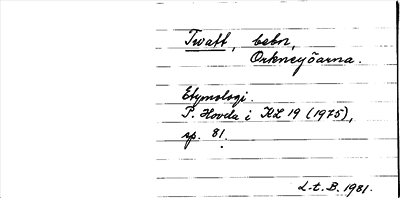 Twatt, bebn,
Orkneyöarna.
Etymologi.
P. Hovda i KL 19 (1975),
sp. 81.
L-t. B. 1981.